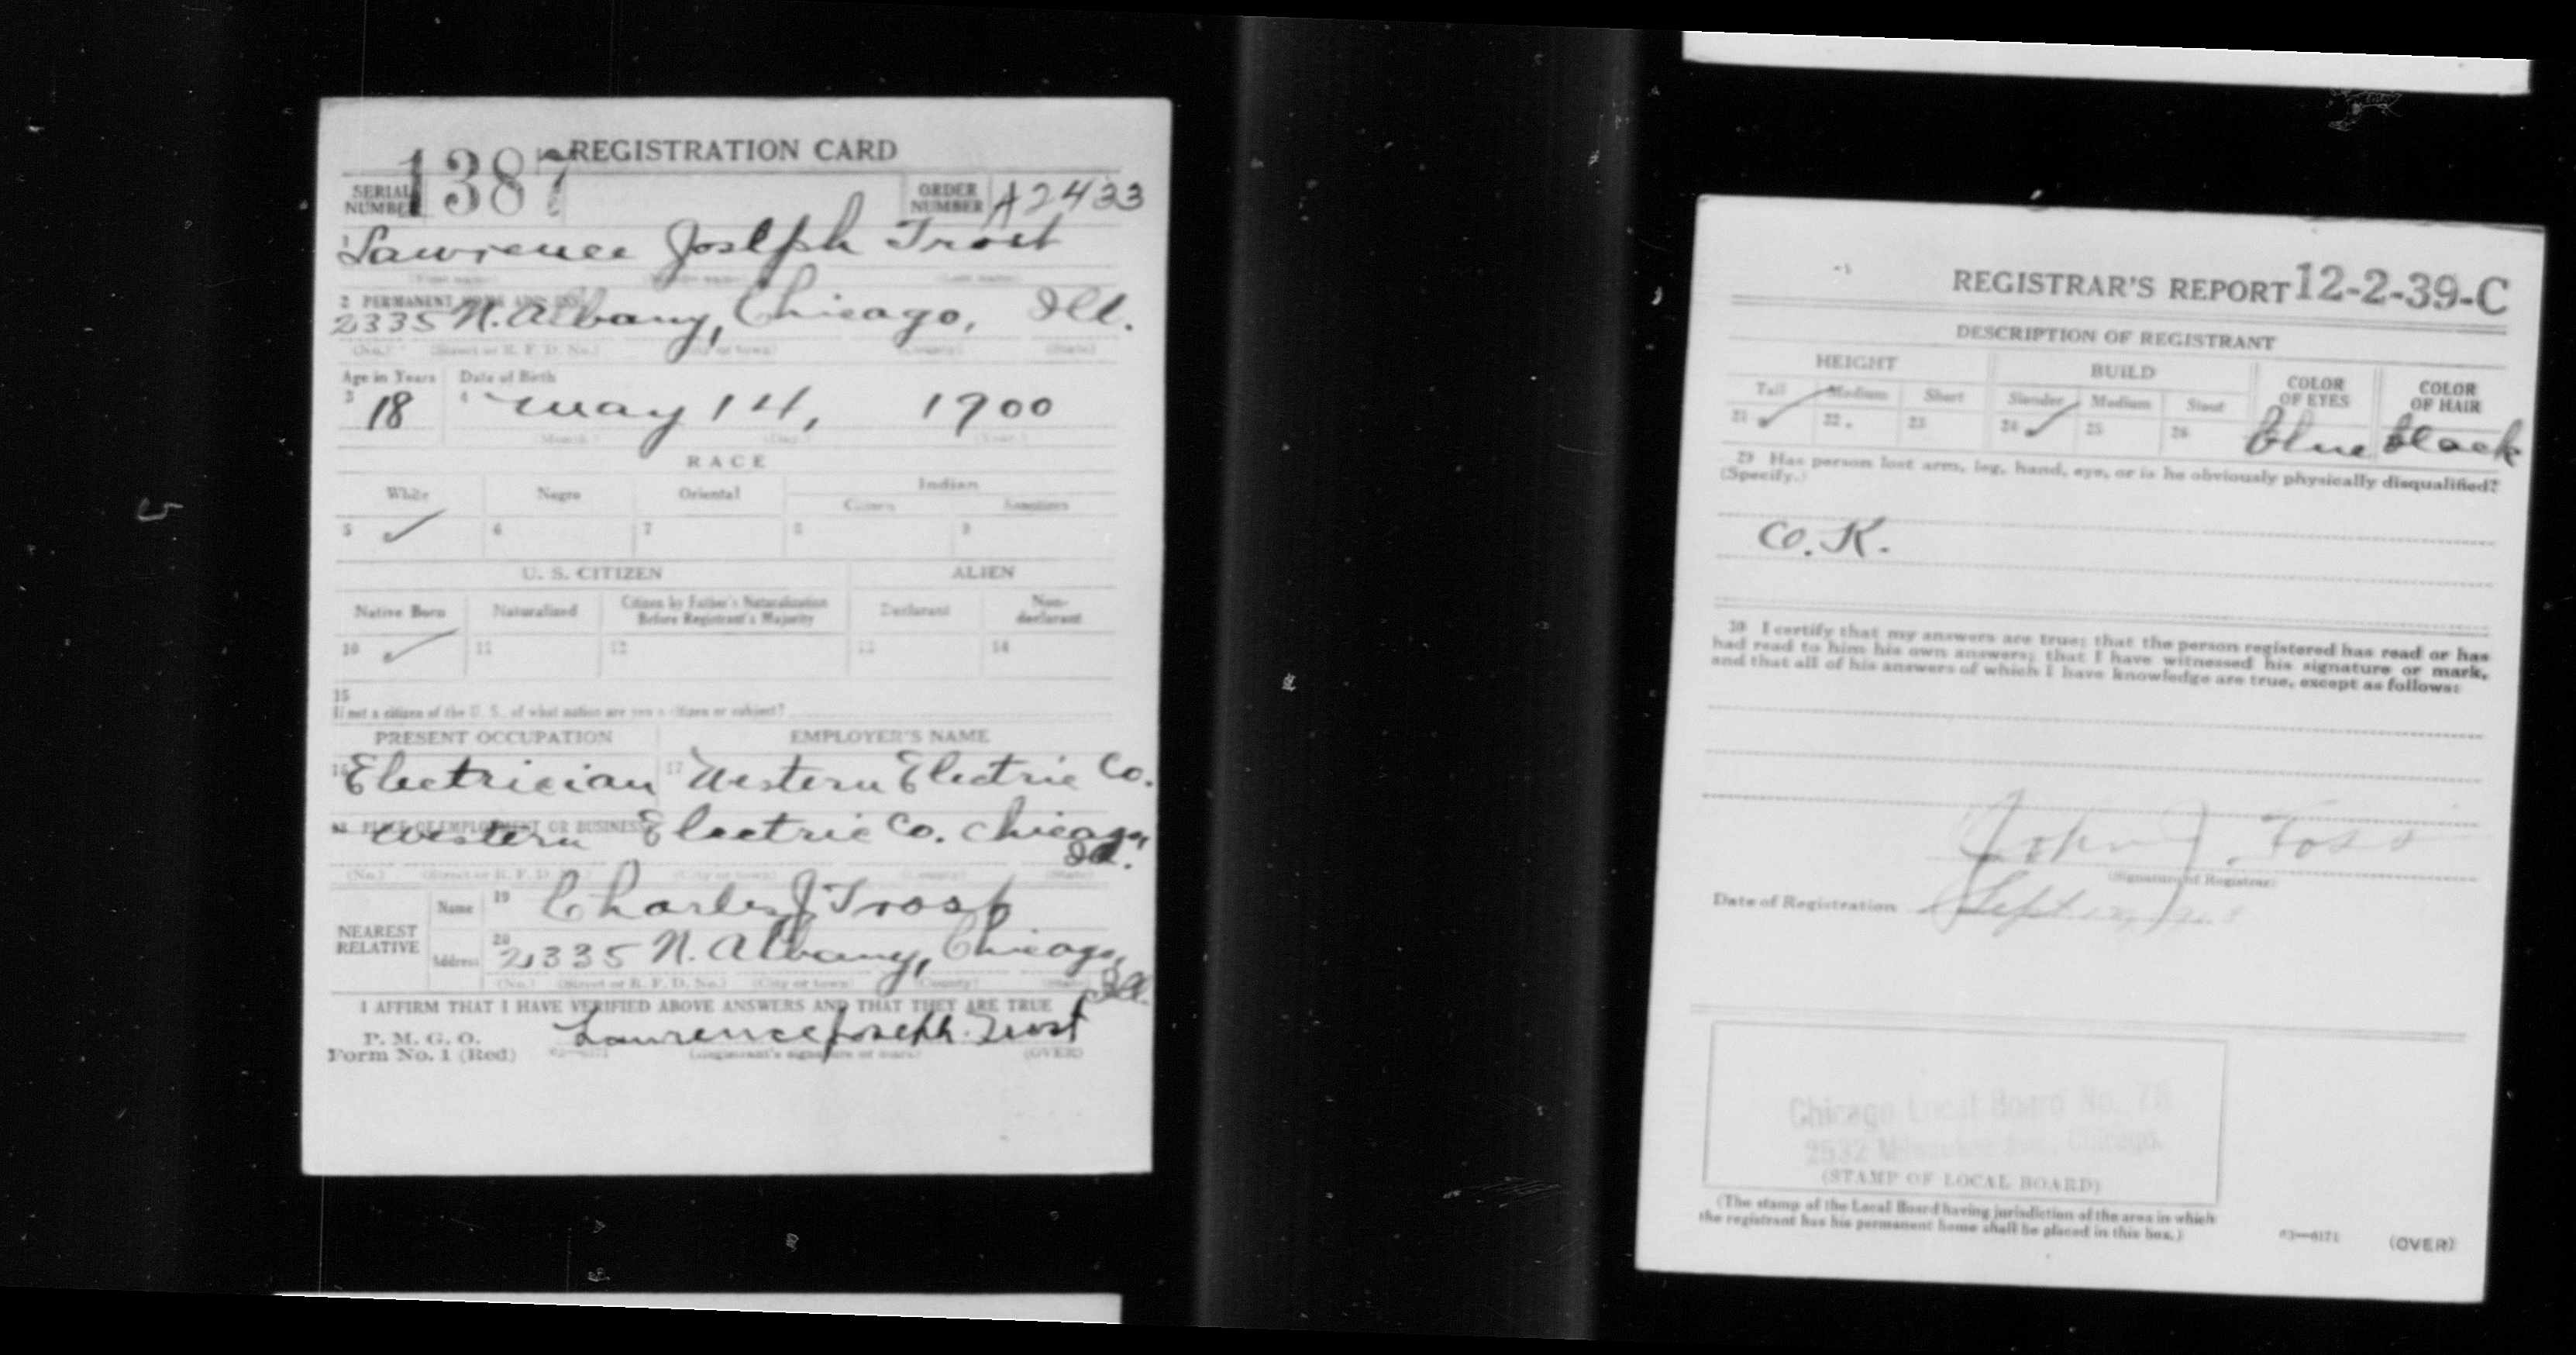 REGISTRATION CARD
SERIAL NUMBER 1387 ORDER NUMBER A2433
1 Lawrence Joseph Trost
(First name) (Middle name) (Last name)
2 PERMANENT HOME ADDRESS
2335 N. Albany, Chicago, Ill.
(No.) (Street or R. F. D. No.) (City or town) (County) (State)
Age in Years Date of Birth
3 18 4 May 14, 1900
(Month.) (Day.) (Year.)
RACE
White Negro Oriental Indian
Citizen Noncitizen
5 ✓ 6 7 8 9
U. S. CITIZEN ALIEN
Native Born Naturalized Citizen by Father's Naturalization Before Registrant's Majority Declarant Non-declarant
10 ✓ 11 12 13 14
15
If not a citizen of the U. S., of what nation are you a citizen or subject?
PRESENT OCCUPATION EMPLOYER'S NAME
16 Electrician 17 Western Electric Co.
18 PLACE OF EMPLOYMENT OR BUSINESS
Western Electric Co. Chicago, Ill.
(No.) (Street or R. F. D. No.) (City or town) (County) (State)
NEAREST RELATIVE
Name 19 Charles J Trost
Address 20 2335 N. Albany, Chicago, Ill.
(No.) (Street or R. F. D. No.) (City or town) (County) (State)
I AFFIRM THAT I HAVE VERIFIED ABOVE ANSWERS AND THAT THEY ARE TRUE
P. M. G. O.
Form No. 1 (Red) 03—6171 Lawrence Joseph Trost
(Registrant's signature or mark) (OVER)
REGISTRAR'S REPORT 12-2-39-C
DESCRIPTION OF REGISTRANT
HEIGHT BUILD COLOR OF EYES COLOR OF HAIR
Tall Medium Short Slender Medium Stout
21 ✓ 22 23 24 ✓ 25 26 blue black
29 Has person lost arm, leg, hand, eye, or is he obviously physically disqualified?
(Specify.)
O. K.
30 I certify that my answers are true; that the person registered has read or has
had read to him his own answers; that I have witnessed his signature or mark,
and that all of his answers of which I have knowledge are true, except as follows:
John J. Foss
(Signature of Registrar)
Date of Registration Sept 12,
Chicago Local Board No.
2532 Milwaukee Ave., Chicago.
(STAMP OF LOCAL BOARD)
(The stamp of the Local Board having jurisdiction of the area in which
the registrant has his permanent home shall be placed in this box.)
03—6171 (OVER)